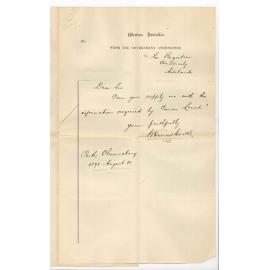 Western Australia.
No.
FROM THE GOVERNMENT ASTRONOMER
To The Registrar
University
Adelaide
Dear Sir
Can you supply me with the
information required by Canon
Yours faithfully
Perth Observatory
1898 August 11